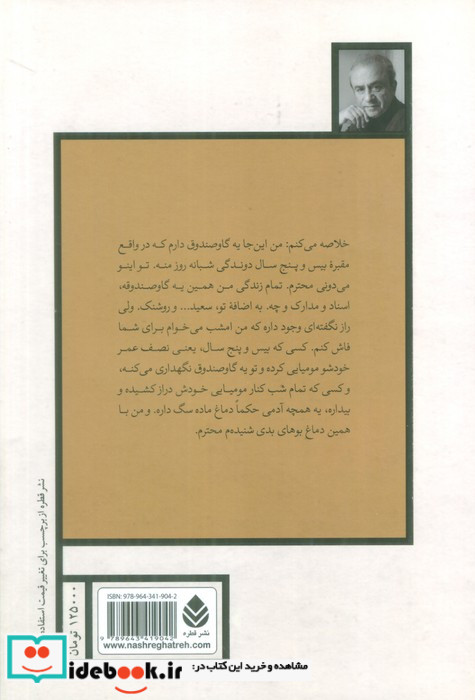 خلاصه می‌کنم: من این‌جا یه گاوصندوق دارم که در واقع
مقبرهٔ بیس و پنج سال دوندگی شبانه روز منه. تو اینو
می‌دونی محترم. تمام زندگی من همین یه گاوصندوقه،
اسناد و مدارک و چه. به اضافهٔ تو، سعید... و روشنک. ولی
راز نگفته‌ای وجود داره که من امشب می‌خوام برای شما
فاش کنم. کسی که بیس و پنج سال، یعنی نصف عمر
خودشو مومیایی کرده و تو یه گاوصندوق نگهداری می‌کنه،
و کسی که تمام شب کنار مومیایی خودش دراز کشیده و
بیداره، یه همچه آدمی حکماً دماغ ماده سگ داره. و من با
همین دماغ بوهای بدی شنیده‌م محترم.
نشر قطره از برچسب برای تغییر قیمت استفاده
۱۲۵۰۰۰ تومان
ISBN: 978-964-341-904-2
9 789643 419042
نشر قطره
www.nashreghatreh.com
مشاهده و خرید این کتاب در:
idebook.ir